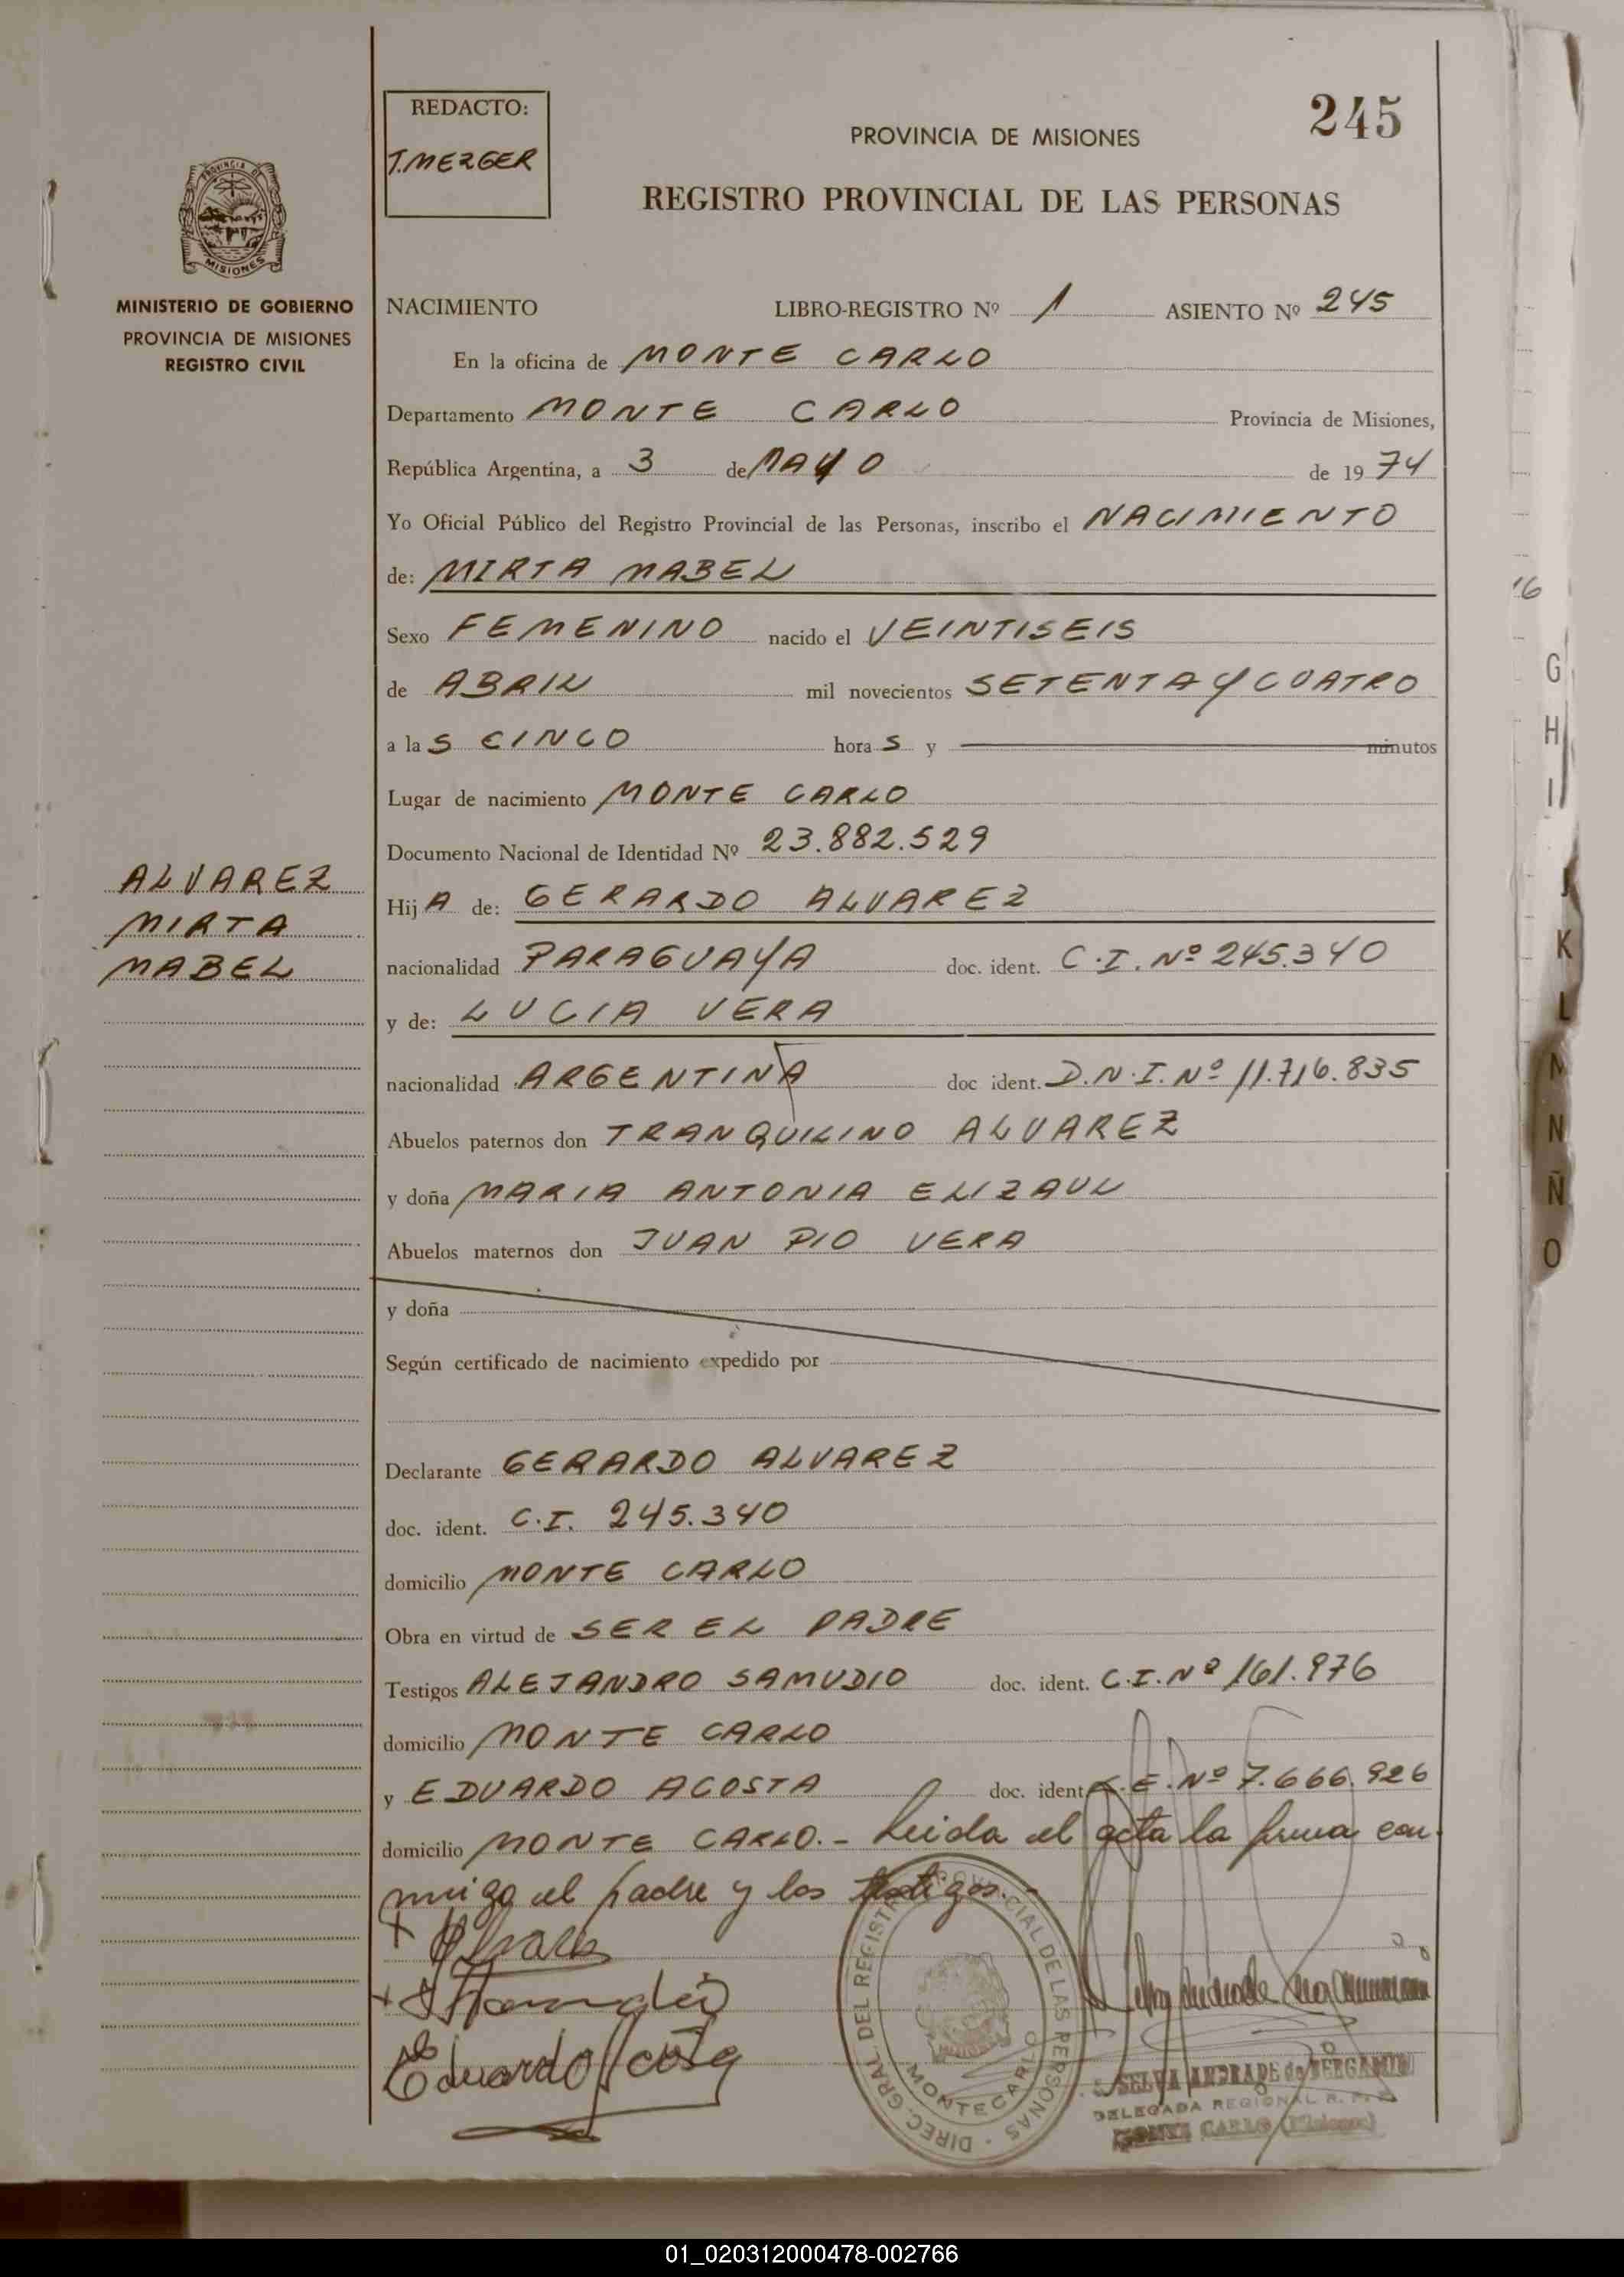 REDACTO:
J. MERGER
245
PROVINCIA DE MISIONES
REGISTRO PROVINCIAL DE LAS PERSONAS
PROVINCIA DE
MISIONES
MINISTERIO DE GOBIERNO
PROVINCIA DE MISIONES
REGISTRO CIVIL
NACIMIENTO LIBRO-REGISTRO Nº 1 ASIENTO Nº 245
En la oficina de MONTE CARLO
Departamento MONTE CARLO Provincia de Misiones,
República Argentina, a 3 de MAYO de 1974
Yo Oficial Público del Registro Provincial de las Personas, inscribo el NACIMIENTO
de: MIRTA MABEL
Sexo FEMENINO nacido el VEINTISEIS
de ABRIL mil novecientos SETENTA Y CUATRO
a las CINCO horas y minutos
Lugar de nacimiento MONTE CARLO
Documento Nacional de Identidad Nº 23.882.529
ALVAREZ
MIRTA
MABEL
HijA de: GERARDO ALVAREZ
nacionalidad PARAGUAYA doc. ident. C.I. Nº 245.340
y de: LUCIA VERA
nacionalidad ARGENTINA doc ident. D.N.I. Nº 11.716.835
Abuelos paternos don TRANQUILINO ALVAREZ
y doña MARIA ANTONIA ELIZAUL
Abuelos maternos don JUAN PIO VERA
y doña
Según certificado de nacimiento expedido por
Declarante GERARDO ALVAREZ
doc. ident. C.I. 245.340
domicilio MONTE CARLO
Obra en virtud de SER EL PADRE
Testigos ALEJANDRO SAMUDIO doc. ident. C.I. Nº 161.976
domicilio MONTE CARLO
y EDUARDO ACOSTA doc. ident. L.E. Nº 7.666.926
domicilio MONTE CARLO.- Leida el acta la firma con
migo el padre y los testigos.-
Eduardo Acosta
DIREC. GRAL DEL REGISTRO PROVINCIAL DE LAS PERSONAS
MONTECARLO
SELVA ANDRADE de BERGAMIN
DELEGADA REGIONAL R. P. P.
MONTE CARLO (Misiones)
16
G
H
I
J
K
L
M
N
Ñ
O
01_020312000478-002766